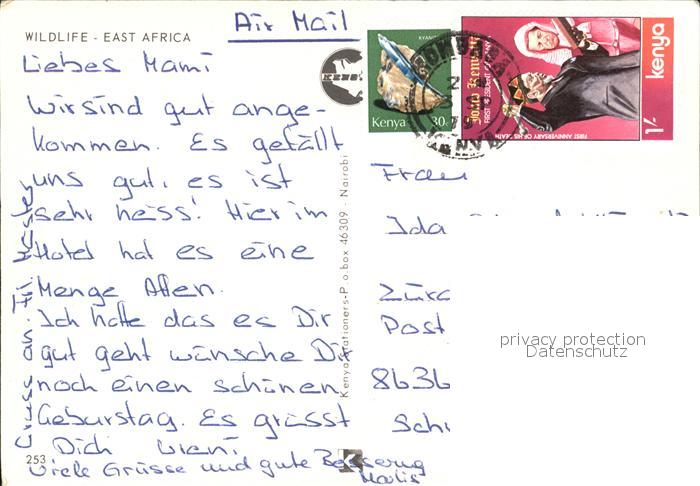 Air Mail
WILDLIFE - EAST AFRICA
Liebes Mami
Wir sind gut ange-
kommen. Es gefällt
uns gut, es ist
sehr heiss! Hier im
Hotel hat es eine
Menge Affen.
Ich hoffe das es Dir
gut geht wünsche Dir
noch einen schönen
Geburstag. Es grüsst
Dich
Viele Grüsse und gute Besserug
Marlis
253
Kenya Stationers-P.o.box 46309 - Nairobi
KYANITE
Kenya 30c
Jomo Kenyatta
FIRST PRESIDENT OF KENYA
FIRST ANNIVERSARY OF HIS DEATH
1/-
kenya
Frau
Ida
Post
8636
privacy protection
Datenschutz